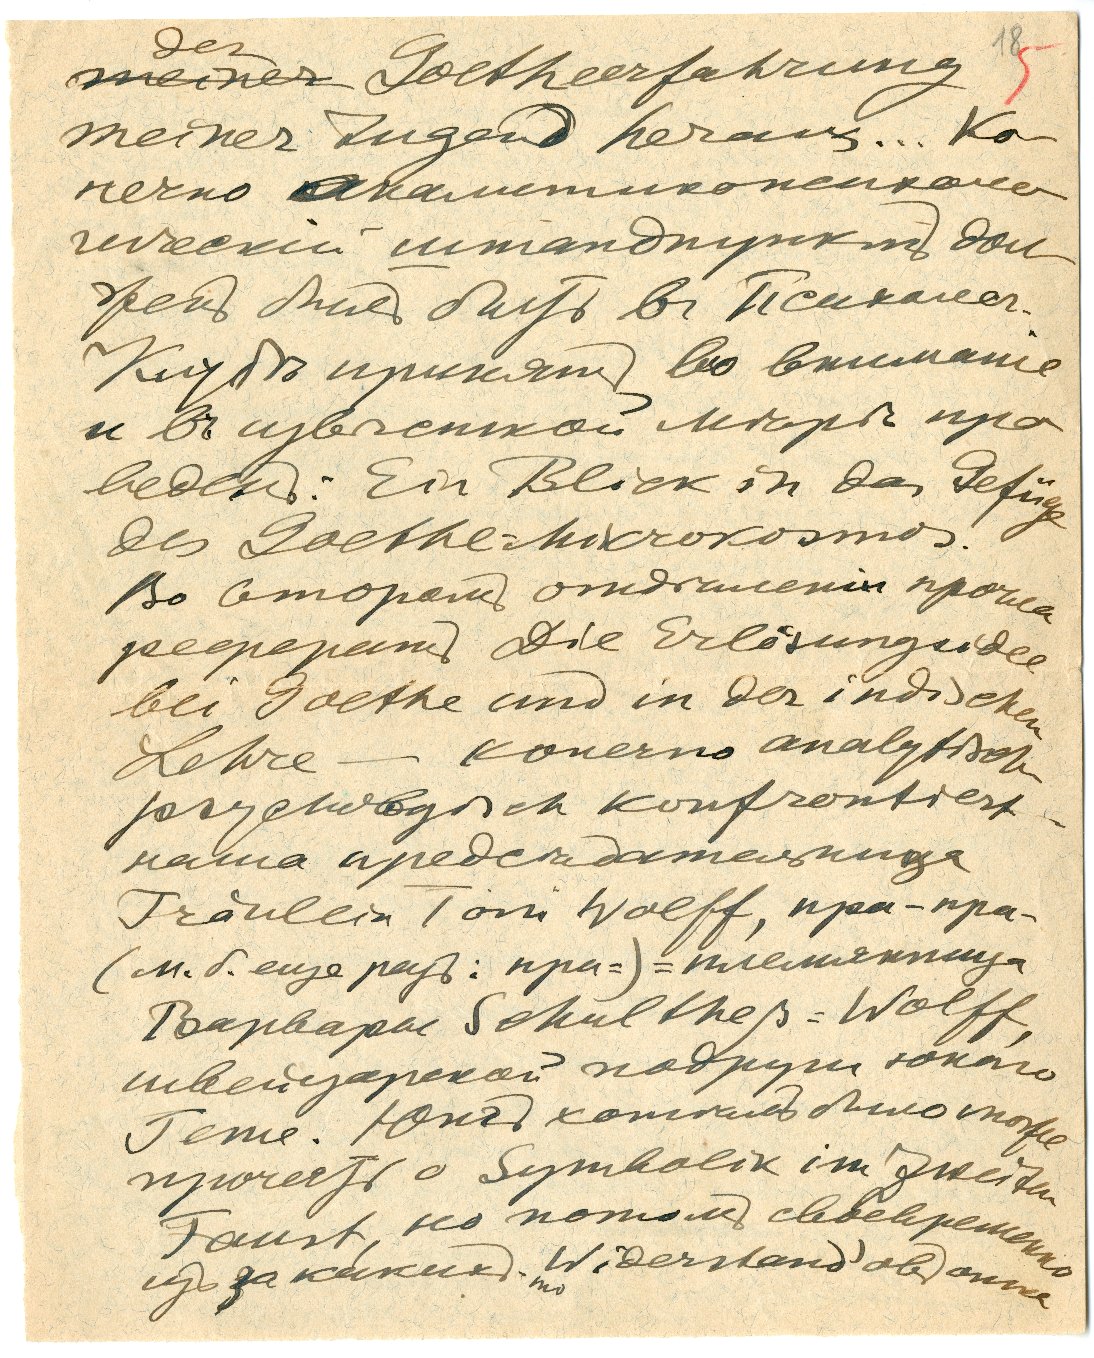 18 5
der
meiner Goetheerfahrung
meiner Jugend heraus... Ко-
нечно аналитикопсихоло
гическій штандпунктъ дол-
женъ былъ быть въ Психолог.
Клубѣ принятъ во вниманіе
и въ извѣстной мѣрѣ про
веденъ: Ein Blick in das Gefüge
des Goethe-Mikrokosmos.
Во второмъ отдѣленіи прочла
рефератъ Die Erlösungsidee
bei Goethe und in der indischen
Lehre — конечно analytisch
psychologisch konfrontiert –
наша предсѣдательница
Fräulein Toni Wolff, пра-пра-
(м. б. еще разъ: пра=)=племянница
Варвары Schultheß=Wolff,
швейцарской подруги юнаго
Гете. Юнгъ хотѣлъ было тоже
прочесть о Symbolik im Zweiten
Faust, но потомъ своевременно
изъ за какихъ-то Widerständ'овъ онъ